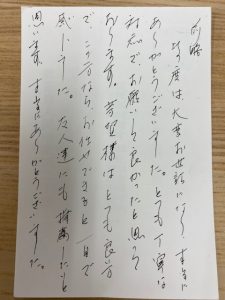 前略
この度は、大変お世話になり、まことに
ありがとうございました。とても丁寧な
対応でお願いして良かったと思って
おります。芳賀様はとても良い方
で、この方ならお任せできると一目で
感じました。友人達にも推薦したいと
思います。まことにありがとうございました。